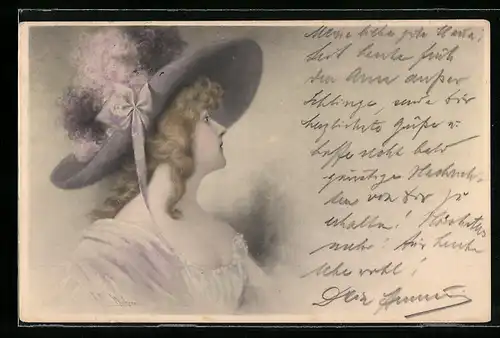 Meine liebe gute Mama!
hat heute früh
den Arm außer
Schlinge, sende Dir
herzlichste Grüße u.
hoffe recht bald
günstige Nachrich-
ten von Dir zu
erhalten!
mehr! Für heute
lebe wohl!
Dein